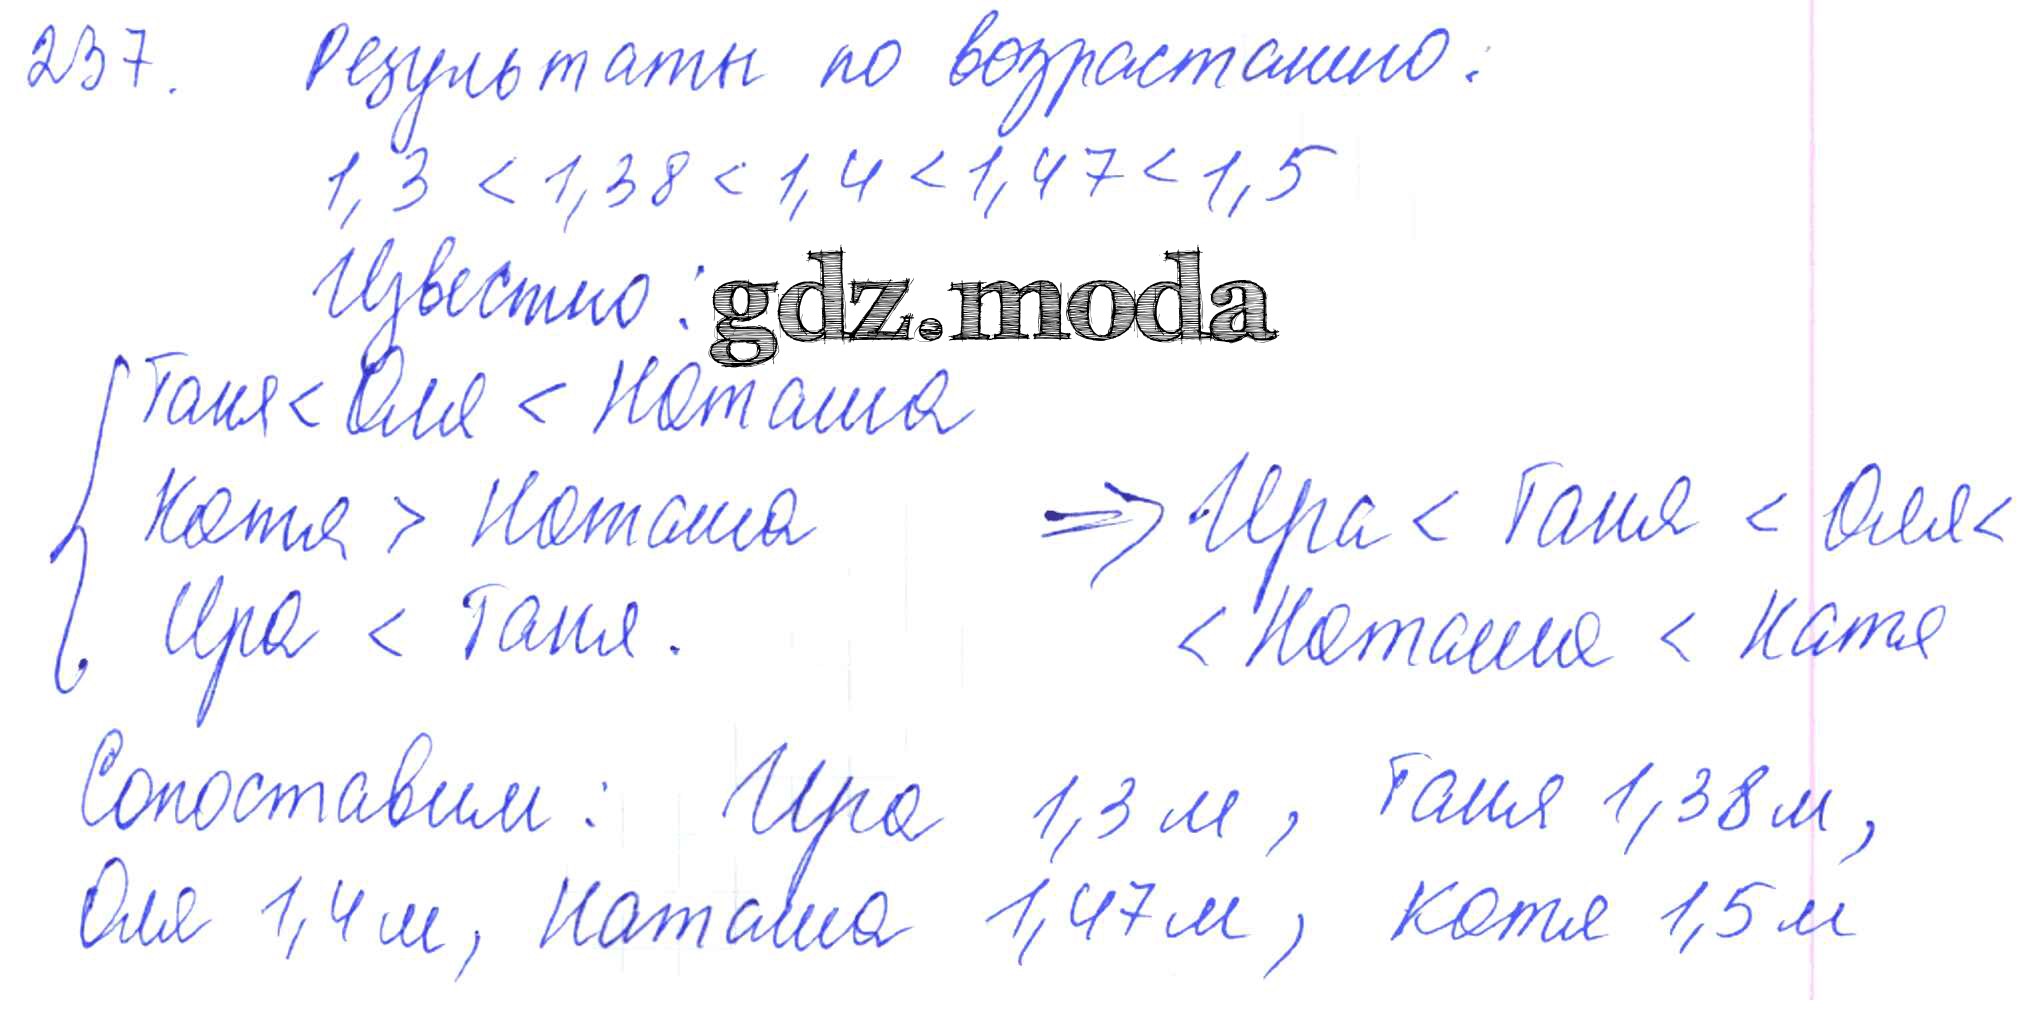 237. Результаты по возрастанию:
1,3 < 1,38 < 1,4 < 1,47 < 1,5
Известно: gdz.moda
Таня < Оля < Наташа
Катя > Наташа
Ира < Таня.
⇒ Ира < Таня < Оля <
< Наташа < Катя
Сопоставим: Ира 1,3 м, Таня 1,38 м,
Оля 1,4 м, Наташа 1,47 м, Катя 1,5 м